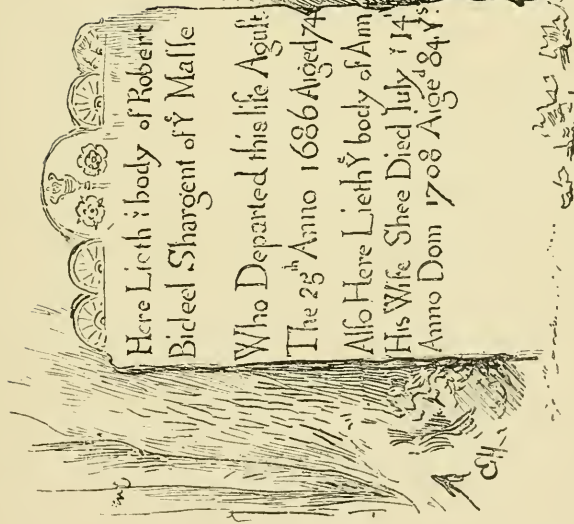 Here Lieth yͤ body of Robert
Bicleel Shargent of Yͤ Masse
Who Departed this life Agust
The 25ᵗʰ Anno 1686 Aiged 74
Also Here Lieth Yͤ body of Ann
His Wife Shee Died July yͤ 14
Anno Dom 1708 Aigeᵈ 84 Yˢ